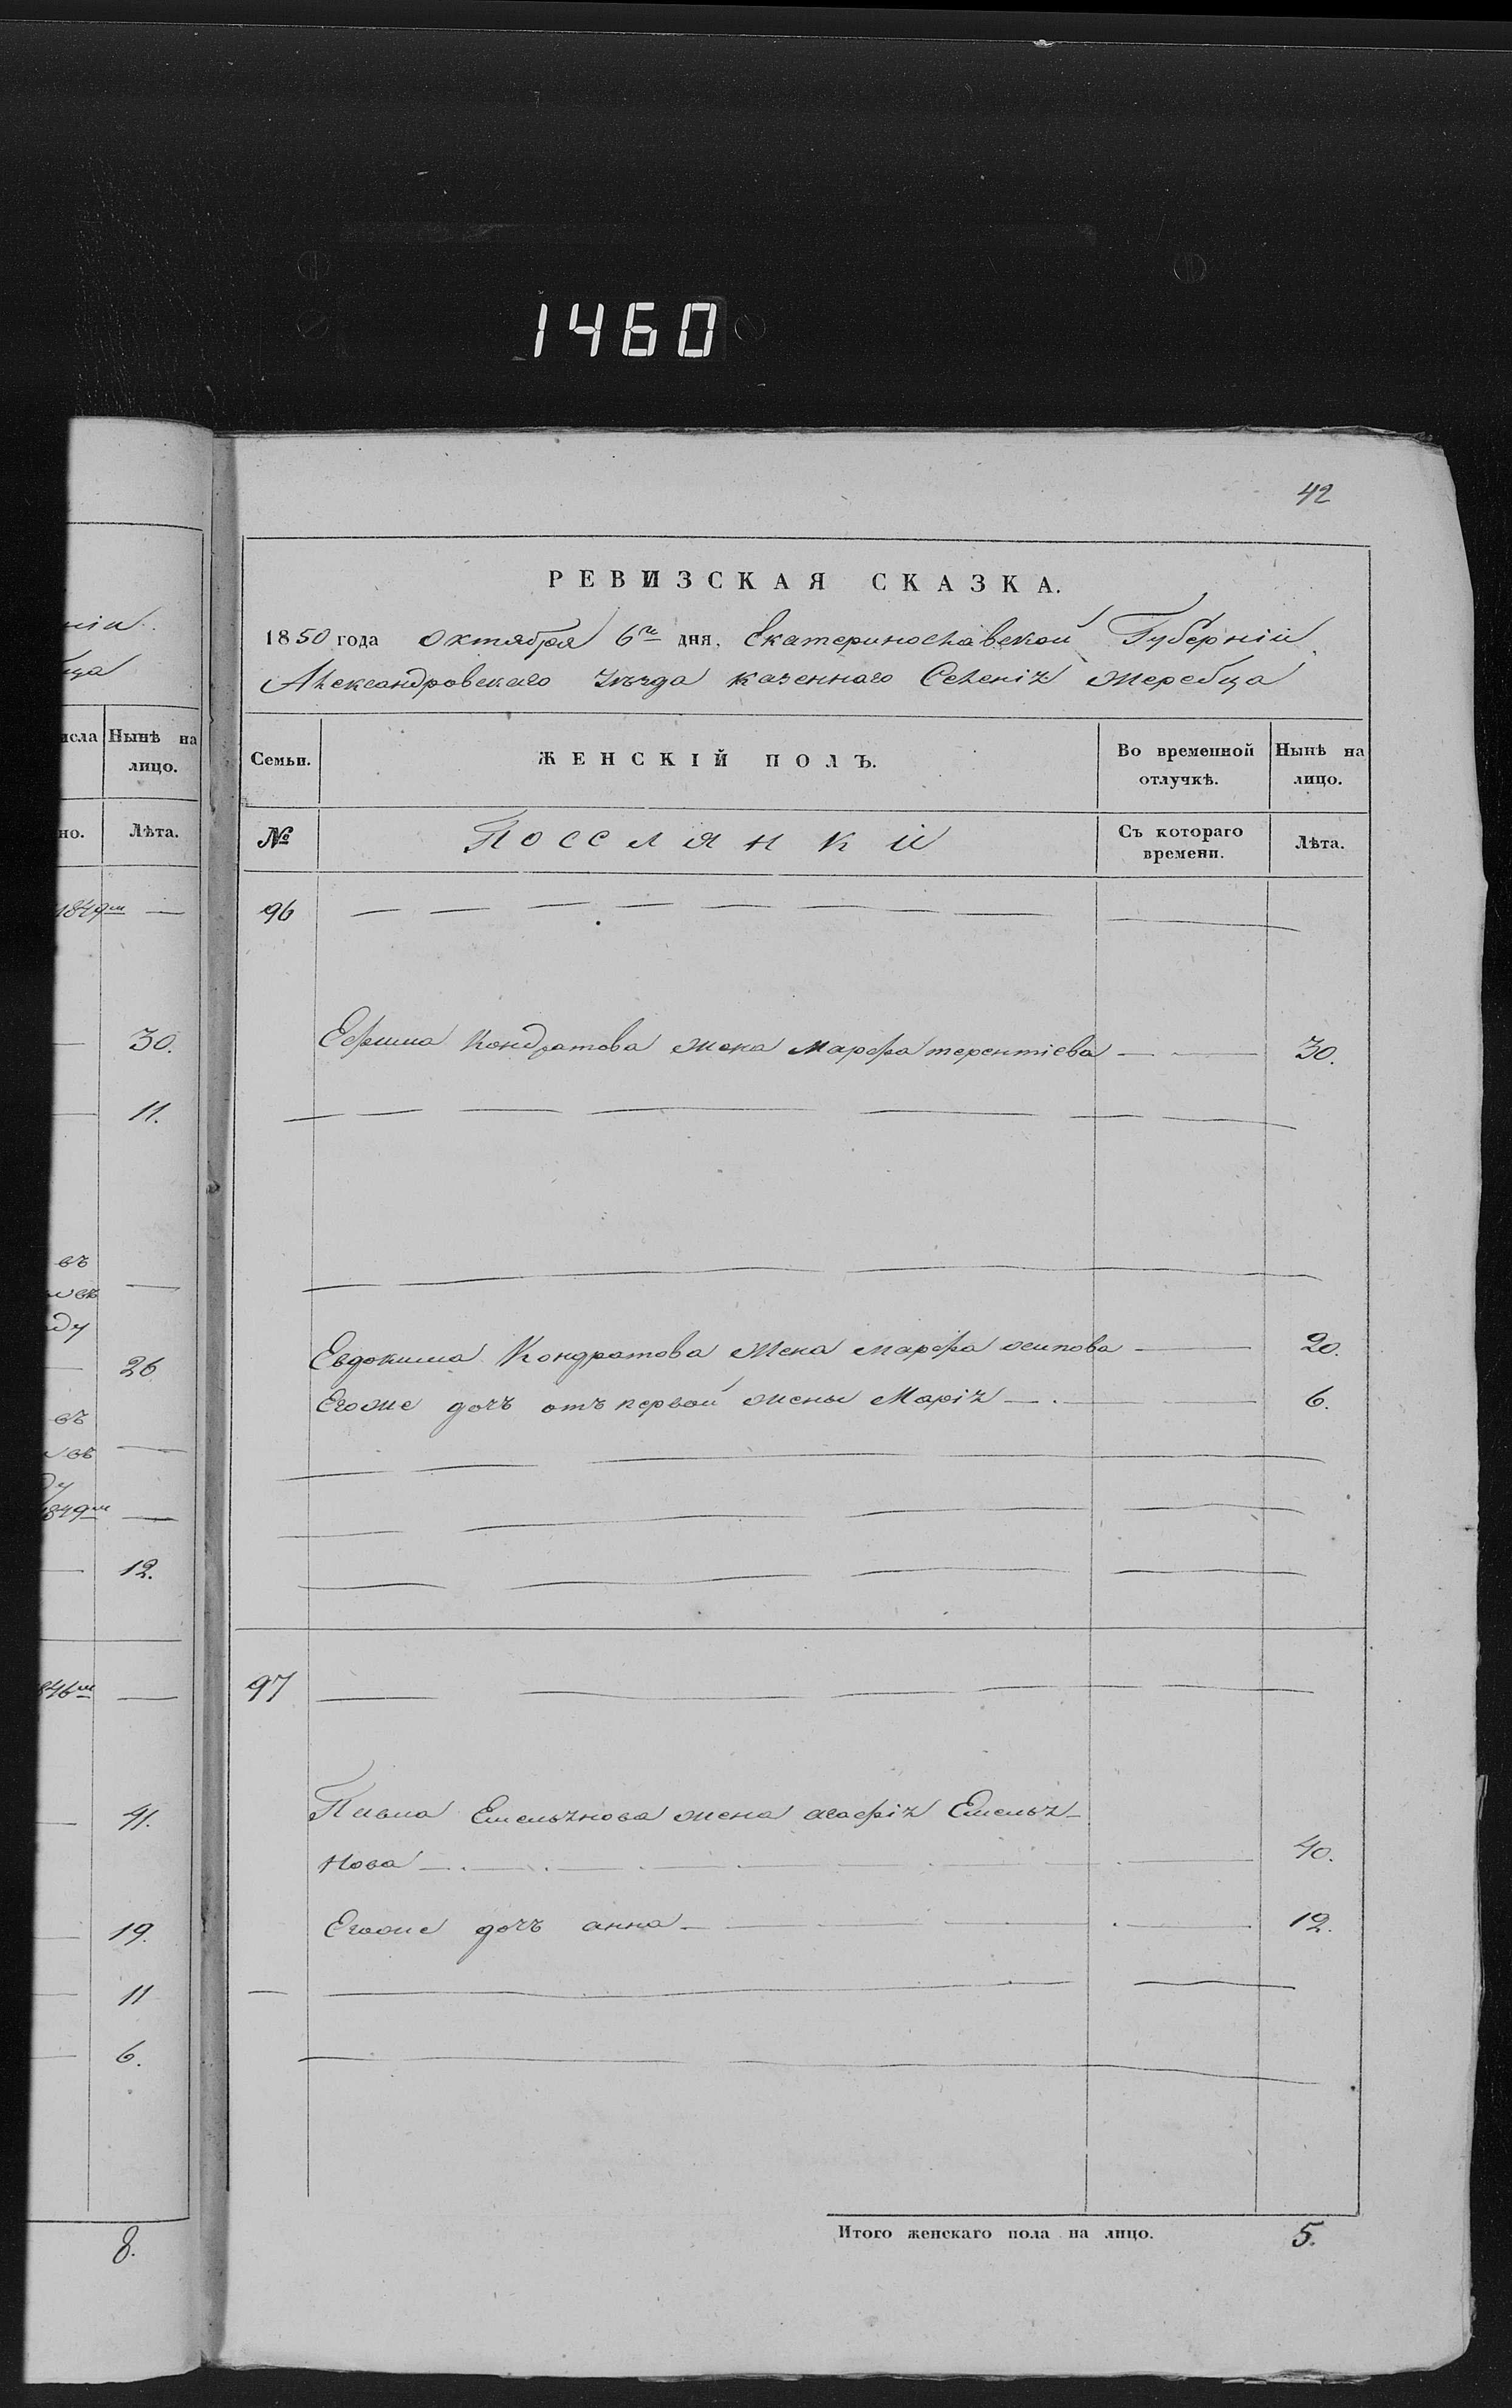 1460
42
РЕВИЗСКАЯ СКАЗКА.
1850 года Октября 6го дня, Екатеринославской Губерніи
Александровскаго Уѣзда казеннаго Селенія Жеребца
Семьи. ЖЕНСКІЙ ПОЛЪ. Во временной отлучкѣ. Нынѣ на лицо.
№ Посслянки Съ котораго времени. Лѣта.
96
Ефима Кондратова жена Марфа терентіева 30.
Евдокима Кондратова жена марфа осипова 20.
Егоже дочь отъ первой жены Марія 6.
97
Емельянова жена агафія Емелья-
нова 40.
Егоже дочь анна 12.
Итого женскаго пола на лицо. 5.
нія
ца
исла Нынѣ на лицо.
но. Лѣта.
1849м
30.
11.
въ
ду
26
въ
въ
ду
1849м
12.
846м
41.
19.
11
6.
8.